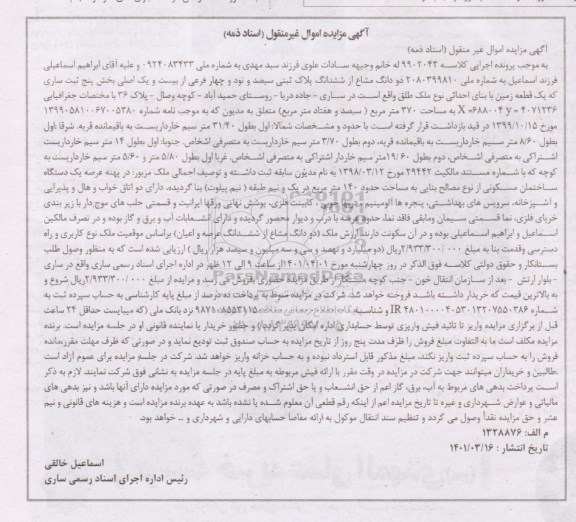 آگهی مزایده اموال غیرمنقول (اسناد ذمه)
آگهی مزایده اموال غیر منقول (اسناد ذمه)
به موجب پرونده اجرایی کلاسه ۹۹۰۲۰۴۳ له خانم وجیهه سادات علوی فرزند سید مهدی به شماره ملی ۰۹۲۴۰۸۳۴۳۳ و علیه آقای ابراهیم اسماعیلی
فرزند اسماعیل به شماره ملی ۲۰۸۰۳۹۹۸۱۰ دو دانگ مشاع از ششدانگ پلاک ثبتی سیصد و نود و چهار فرعی از بیست و یک اصلی بخش پنج ثبت ساری
که یک قطعه زمین با بنای احداثی نوع ملک طلق واقع است در ساری - جاده دریا - روستای حمید آباد - کوچه وصال - پلاک ۳۶ با مختصات جغرافیایی
۴۰۷۱۱۳۶ - X ۰۶۸۸۰۰۴ Y به مساحت ۳۷۰ متر مربع ( سیصد و هفتاد متر مربع) متعلق به مدیون که به موجب نامه شماره ۱۳۹۹۰۵۸۱۰۰۶۷۰۰۵۳۸۰
مورخ ۱۳۹۹/۱۰/۱۵ در قید بازداشت قرار گرفته است با حدود و مشخصات شمالا: اول بطول ۳۱/۴۰ متر سیم خارداریست به باقیمانده قریه. شرقا :اول
بطول ۸/۶۰ متر سیم خارداریست به باقیمانده قریه، دوم بطول ۳/۷۰ متر سیم خارداریست به متصرفی اشخاص. جنوبا: اول بطول ۱۴ متر سیم خارداریست
اشتراکی به متصرفی اشخاص، دوم بطول ۱۹/۶۰متر سیم خاردار اشتراکی به متصرفی اشخاص. غربا اول بطول ۵/۸۰ متر و ۵/۶۰ متر سیم خارداریست به
کوچه که با شماره مستند مالکیت ۲۹۴۴۲ مورخ ۱۳۹۸/۰۳/۱۲ به نام مدیون سابقه ثبت داشته و توصیف اجمالی ملک مزبور: در پهنه عرصه یک دستگاه
ساختمان مسکونی از نوع مصالح بنایی به مساحت حدود ۱۴۰ متر مربع در یک و نیم طبقه ( نیم پیلوت) بنا گردیده، دارای دو اتاق خواب و هال و پذیرایی
و آشپزخانه، سرویس های بهداشتی، پنجره ها آلومینیم و درب چوبی، کابینت فلزی، پوشش نهایی ورقها ایرانیت و قسمتی حلب های موج دار با زیر بندی
خرپای فلزی، نما قسمتی سیمان ومابقی فاقد نما، محوطه متفرقه با درب و دیوار محصور گردیده و دارای انشعابات آب و برق و گاز بوده و در تصرف مالکین
اسماعیل و ابراهیم اسماعیلی بوده و در آن سکونت دارند. ارزش ملک (دو دانگ مشاع از ششدانگ عرصه و اعیان) براساس موقعیت ملک نوع کاربری و راه
دسترسی وقدمت بنا به مبلغ ۲/۹۳۳/۳۰۰/۰۰۰ریال (دو میلیارد و نهصد و سی و سه میلیون و سیصد هزار ریال ) ارزیابی شده است که به منظور وصول طلب
بستانکار و حقوق دولتی کلاسه فوق الذکر در روز چهارشنبه مورخ ۱۴۰۱/۰۴/۰۱از ساعت ۹ الی ۱۲ ظهر در اداره اجرای اسناد رسمی ساری واقع در ساری
- بلوار ارتش - بعد از سازمان انتقال خون - جنب کوچه ... از طریق مزایده حضوری بفروش می رسد و مزایده از مبلغ ۲/۹۳۳/۳۰۰/۰۰۰ریال شروع و
به بالاترین قیمت که خریدار داشته باشد فروخته خواهد شد. شرکت در مزایده منوط به پرداخت ده درصد از مبلغ پایه کارشناسی به حساب سپرده ثبت به
شماره IR ۴۸۰۱۰۰۰۰۴۰۵۳۰۱۳۲۰۷۵۵۰۳۸۶ و شناسه ... نزد بانک ملی (که میبایست حداقل ۲۴ ساعت
قبل از برگزاری مزایده واریز تا تائید فیش واریزی توسط حسابداری اداره امکان پذیر گردد) و حضور خریدار یا نماینده قانونی او در جلسه مزایده است. برنده
مزایده مکلف است ما به التفاوت مبلغ فروش را ظرف مدت پنج روز از تاریخ مزایده به حساب صندوق ثبت تودیع نماید و در صورتی که ظرف مهلت مقرر،مانده
فروش را به حساب سپرده ثبت واریز نکند، مبلغ مذکور قابل استرداد نبوده و به حساب خزانه واریز خواهد شد. شرکت در جلسه مزایده برای عموم آزاد است
.طالبین و خریداران میتوانند جهت شرکت در مزایده در وقت مقرر با ارائه فیش مربوطه به مبلغ پایه در جلسه مزایده به نشانی فوق شرکت نمایند. لازم به ذکر
است پرداخت بدهی های مربوط به آب، برق، گاز اعم از حق انشعاب و یا حق اشتراک و مصرف در صورتی که مورد مزایده دارای آنها باشد و نیز بدهی های
مالیاتی و عوارض شهرداری و غیره تا تاریخ مزایده اعم از اینکه رقم قطعی آن معلوم شده یا نشده باشد به عهده برنده مزایده است و هزینه های قانونی و نیم
عشر و حق مزایده نقداً وصول می گردد و تنظیم سند انتقال موکول به ارائه مفاصا حسابهای دارایی و شهرداری و ... خواهد بود.
م الف: ۱۳۲۸۸۷۶
تاریخ انتشار : ۱۴۰۱/۰۳/۱۶
اسماعیل خالقی
رئیس اداره اجرای اسناد رسمی ساری